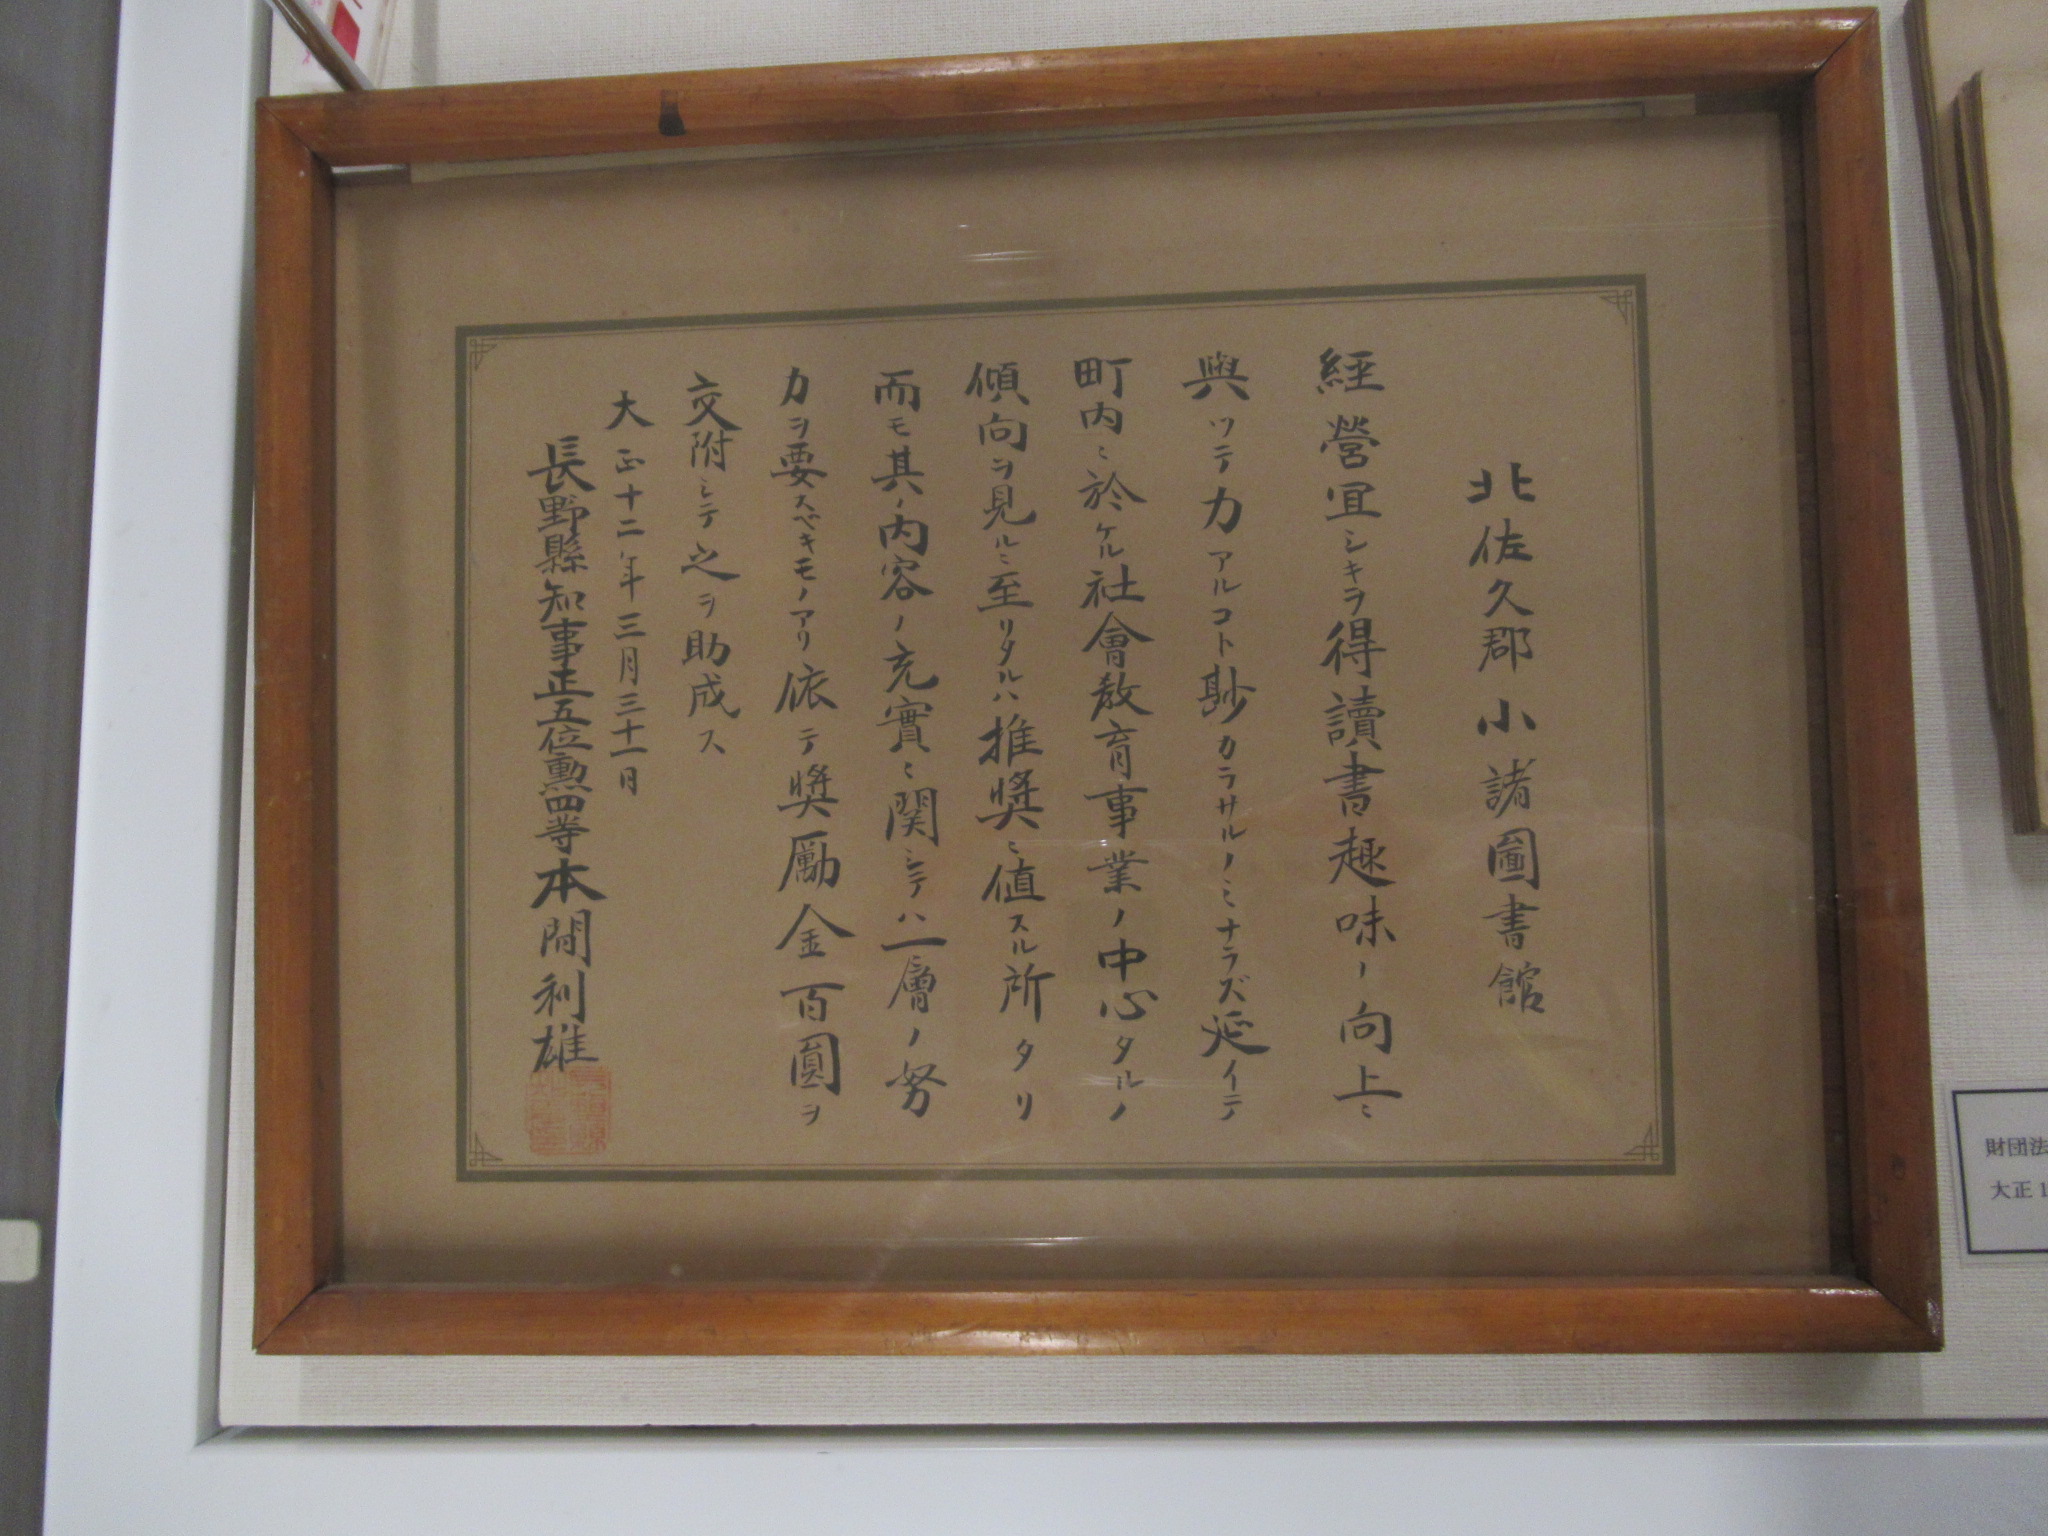 北佐久郡小諸圖書館
經營宜シキヲ得讀書趣味ノ向上ニ
與ツテ力アルコト尠カラサルノミナラズ延イテ
町内ニ於ケル社會敎育事業ノ中心タルノ
傾向ヲ見ルニ至リタルハ推奬ニ値スル所タリ
而モ其ノ内容ノ充實ニ関シテハ一層ノ努
力ヲ要スベキモノアリ依テ奬勵金百圓ヲ
交附シテ之ヲ助成ス
大正十二年三月三十一日
長野縣知事正五位勲四等本間利雄
財団法
大正1